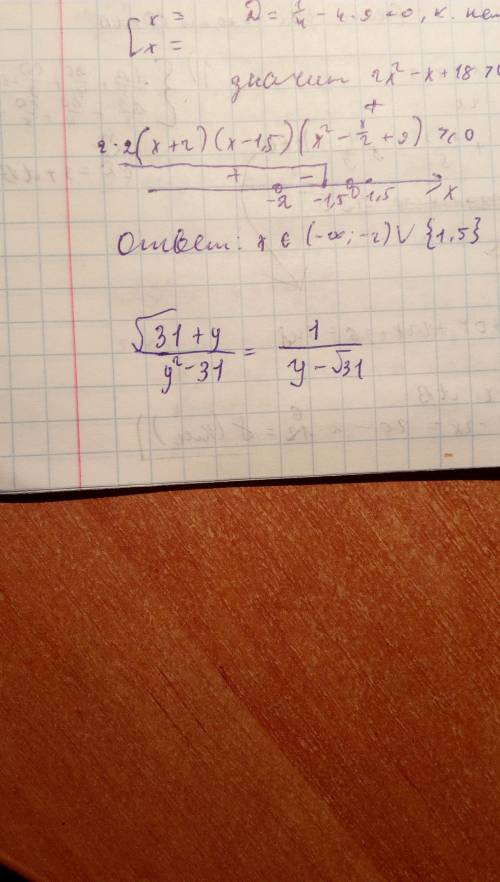 x = D = 1/4 - 4·9 < 0, к. нет
x =
значит 2x² - x + 18 > 0
+
2·2(x+2)(x-1,5)(x² - x/2 + 9) ≥ 0
+ -
-2 -1,5 1,5 x
Ответ: x ∈ (-∞; -2) ∪ {1,5}
(√31 + y)/(y² - 31) = 1/(y - √31)